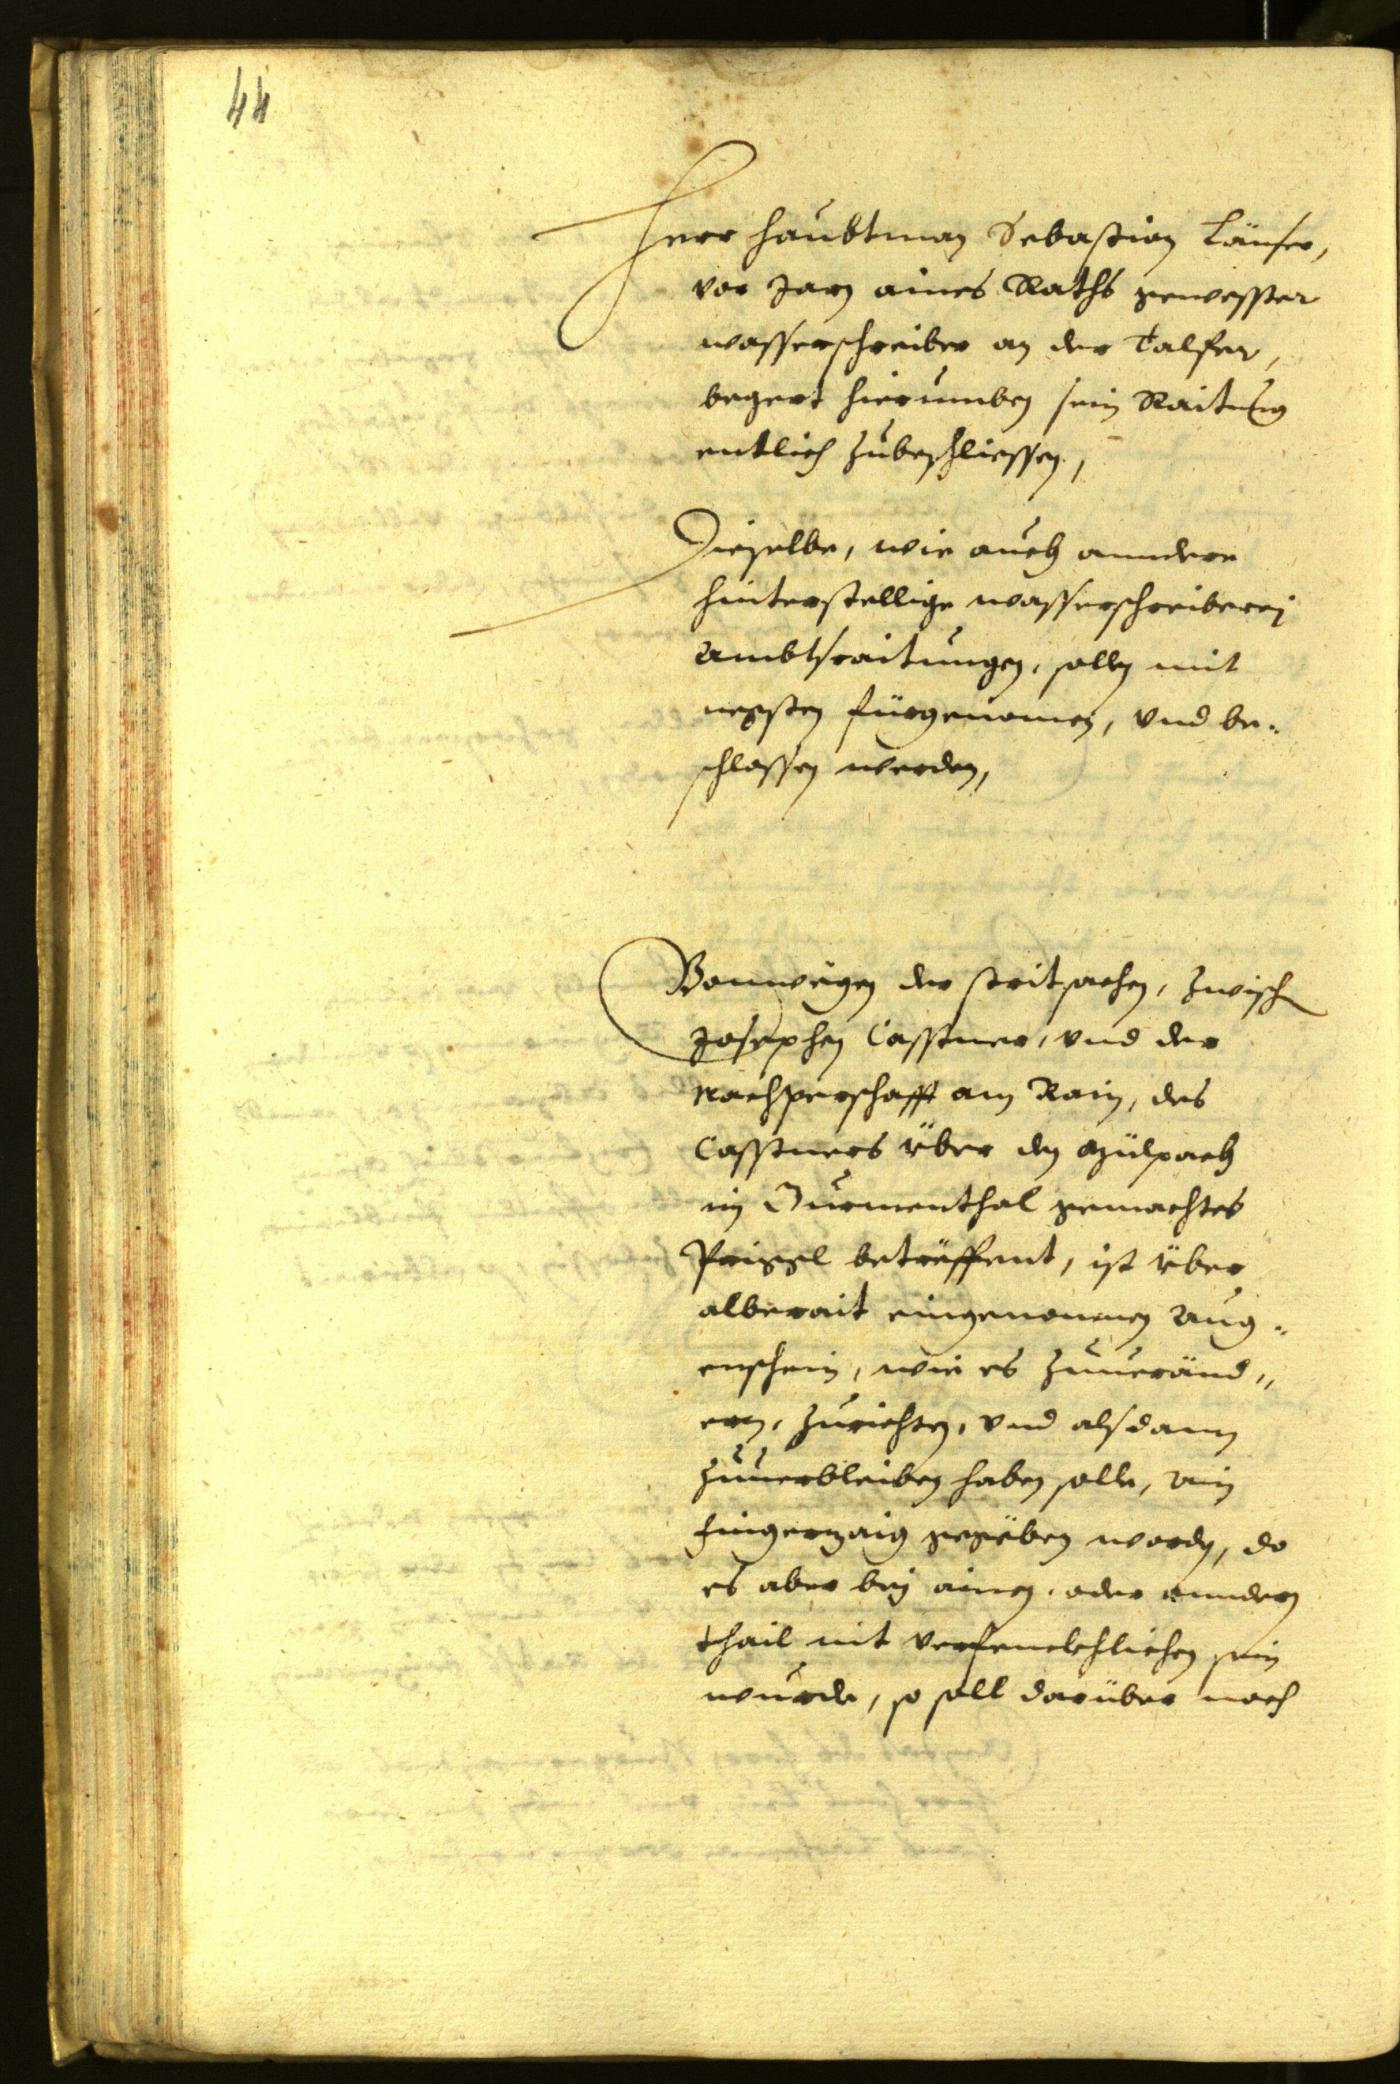 44
Herr Haubtman Sebastian Länser,
vor Jarn aines Raths gewesster
wasserschreiber an der Talfer,
begert hierumben sein Raitung
entlich zubeschliessen,
Dieselbe, wie auch anndere
hinterstellige wasserschreiberej
Ambtsraitungen, sollen mit
negsten fürgenomen, vnd be-
schlossen werden,
Vonwegen der stritsachen, zwischen
Josephen Casstner, vnd der
Nachperschafft am Rain, des
Casstners über den Mülpach
in gemachtes
Prüggl betreffent, ist über
alberait eingenommen Aug-
enschein, wie es zuueränd-
ern, zurichten, vnd alsdann
zuuerbleiben haben solle, ain
fingerzaig gegeben worden, do
es aber bej ainen, oder anndern
thail nit verfencklichen sein
wurde, so soll darüber noch